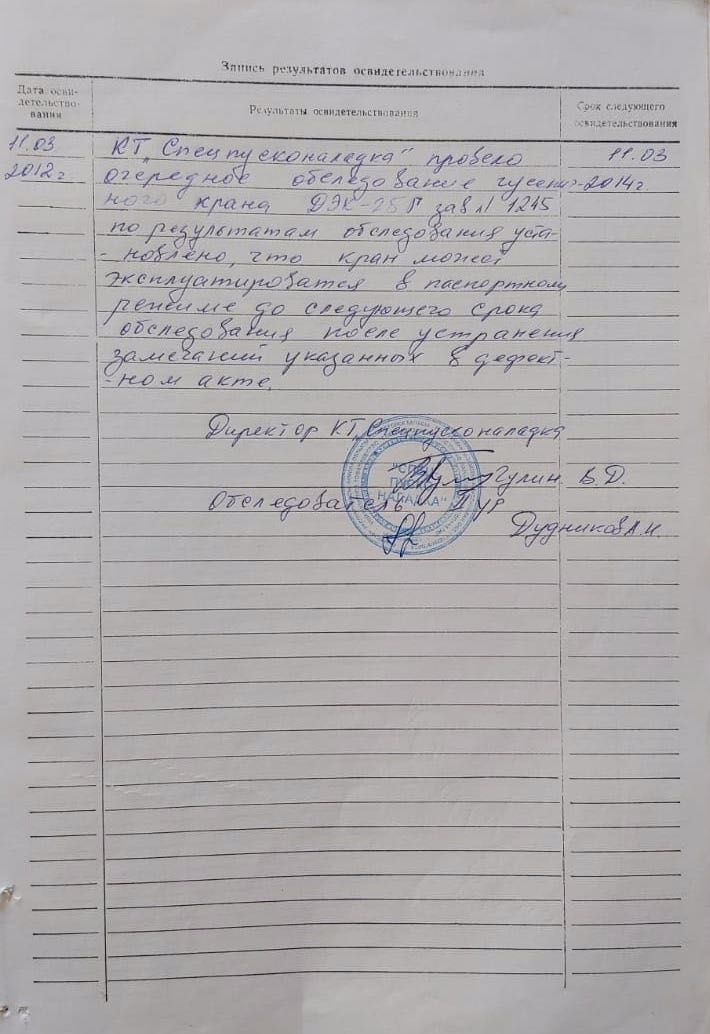 Запись результатов освидетельствования
Дата осви-
детельство-
вания
Результаты освидетельствования
Срок следующего
освидетельствования
11.03
КТ „Спецпусконаладка" провело
11.03
2012г
очередное обследование гусенич-
2014г.
ного крана ДЭК-25Г зав№ 1245
по результатам обследования уста-
-новлено, что кран может
эксплуатироватся в паспортном
режиме до следующего срока
обследования после устранения
замечаний указанных в дефект-
-ном акте.
Директор КТ „Спецпусконаладка
Гулин В.Д.
Обследователь
Дудников А.Н.
"СПЕЦ
ПУСКО
НАЛАДКА"